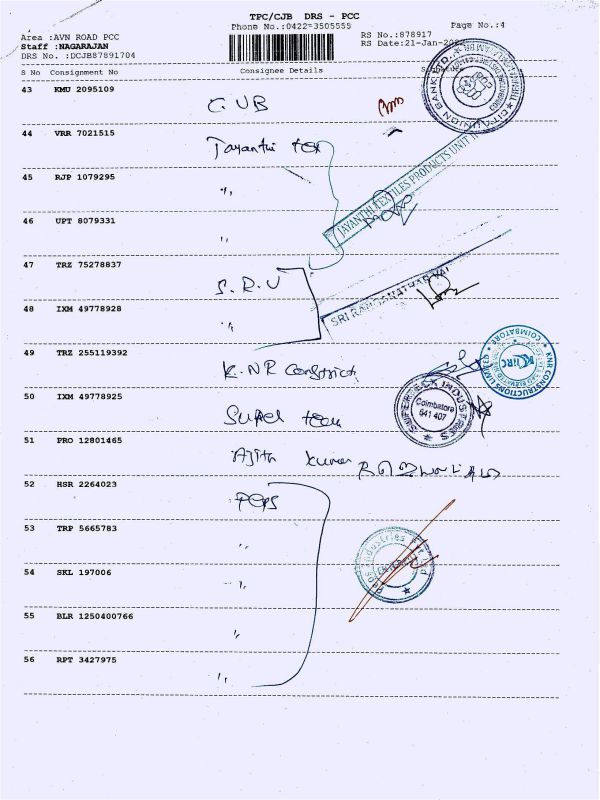 TPC/CJB DRS - PCC
Phone No.:0422-3505555
Page No.:4
Area :AVN ROAD PCC
RS No.:878917
Staff :NAGARAJAN
RS Date:21-Jan-
DRS No. :DCJB87891704
S No Consignment No Consignee Details
43 KMU 2095109
C.U.B
44 VRR 7021515
Jayanthi tex
45 RJP 1079295
"
JAYANTHI TEXTILES PRODUCTS UNIT
46 UPT 8079331
"
47 TRZ 75278837
S.R.V
48 IXM 49778928
"
49 TRZ 255119392
K.NR Construct
KNR CONSTRUCTIONS LIMITED COIMBATORE
50 IXM 49778925
Super
INDUSTRIES Coimbatore 641 407
51 PRO 12801465
Ajith kumar
52 HSR 2264023
PEPS
53 TRP 5665783
"
54 SKL 197006
"
55 BLR 1250400766
"
56 RPT 3427975
"